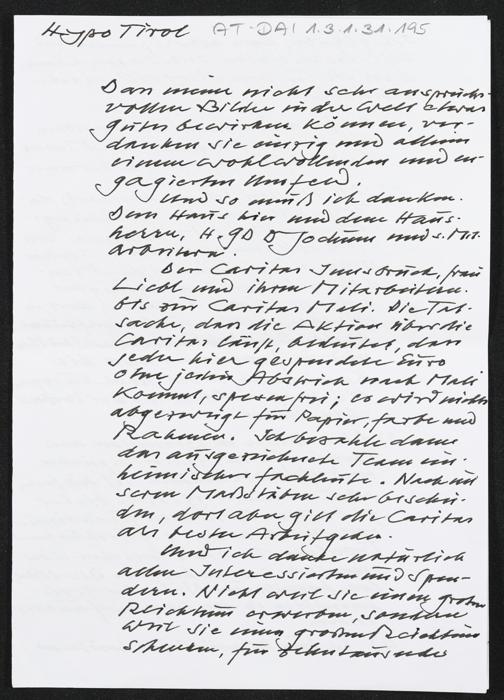 Hypo Tirol AT-DAI 1.3.1.31.195
Dass meine nicht sehr anspruchs-
vollen Bilder in der Welt etwas
gutes bewirken können, ver-
danken sie einzig und allein
einem wohlwollenden und en-
gagierten Umfeld.
Und so muß ich danken.
Dem Haus hier und dem Haus-
herrn, H. GD D Jochum und s. Mit-
arbeitern.
Der Caritas Innsbruck, frau
Liebl und ihren Mitarbeitern.
bis zur Caritas Mali. Die Tat-
sache, dass die Aktion über die
Caritas läuft, bedeutet, dass
jeder hier gespendete Euro
ohne jeden Abstrich nach Mali
kommt, spesenfrei; es wird nichts
abgezweigt für Papier, farbe und
Rahmen. Ich bezahle damit
das ausgezeichnete Team ein-
heimischer fachleute. Nach un
seren Maßstäben sehr beschei-
den, dort aber gilt die Caritas
als bester Arbeitgeber.
Und ich danke natürlich
allen Interessierten und Spen-
dern. Nicht weil sie einen großen
Reichtum erwerben, sondern
weil sie einen großen Reichtum
steuern, für